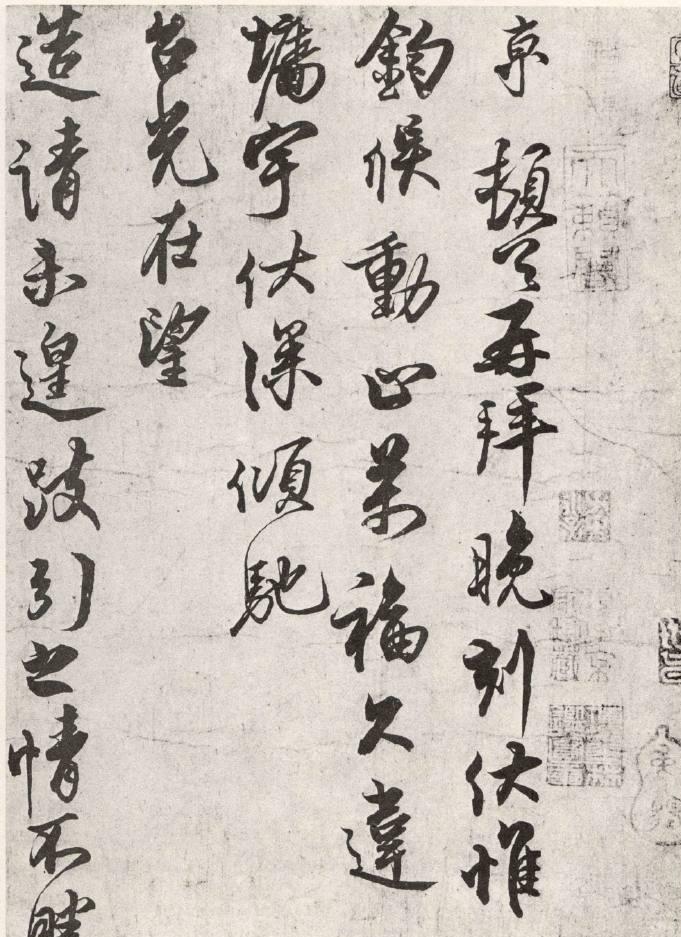 京 頓首再拜晚刻伏惟
鈞候動止萬福久違
墉宇伏深傾馳
台光在望
造請未遑跂引之情不勝